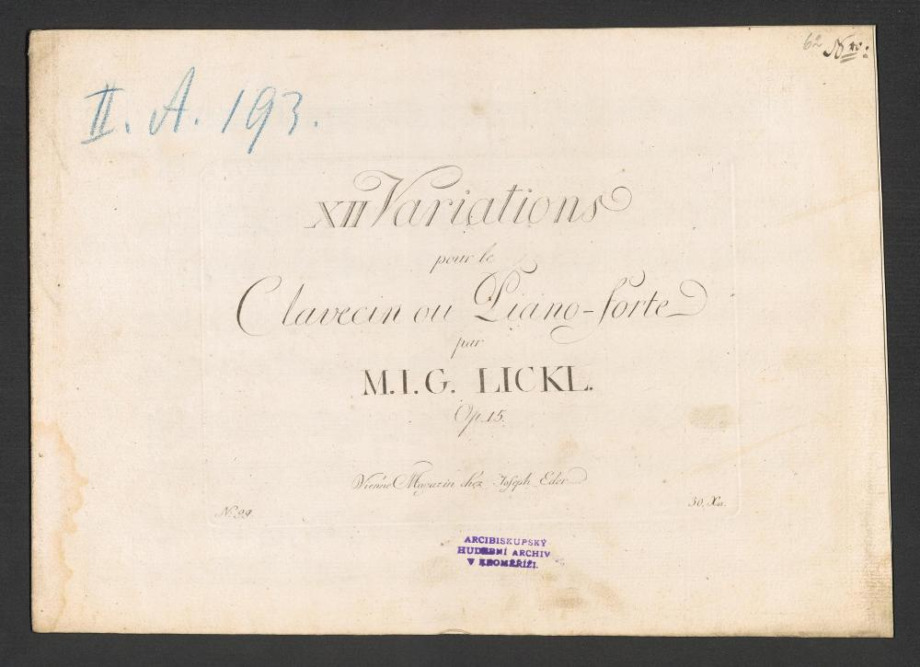 62 N ro:
II. A. 193.
XII Variations
pour le
Clavecin ou Piano-forte
par
M.I.G. LICKL.
Op. 15.
Vienne Magazin chez Joseph Eder
No. 99.
30. Xu.
ARCIBISKUPSKÝ
HUDEBNÍ ARCHIV
V KROMĚŘÍŽI.